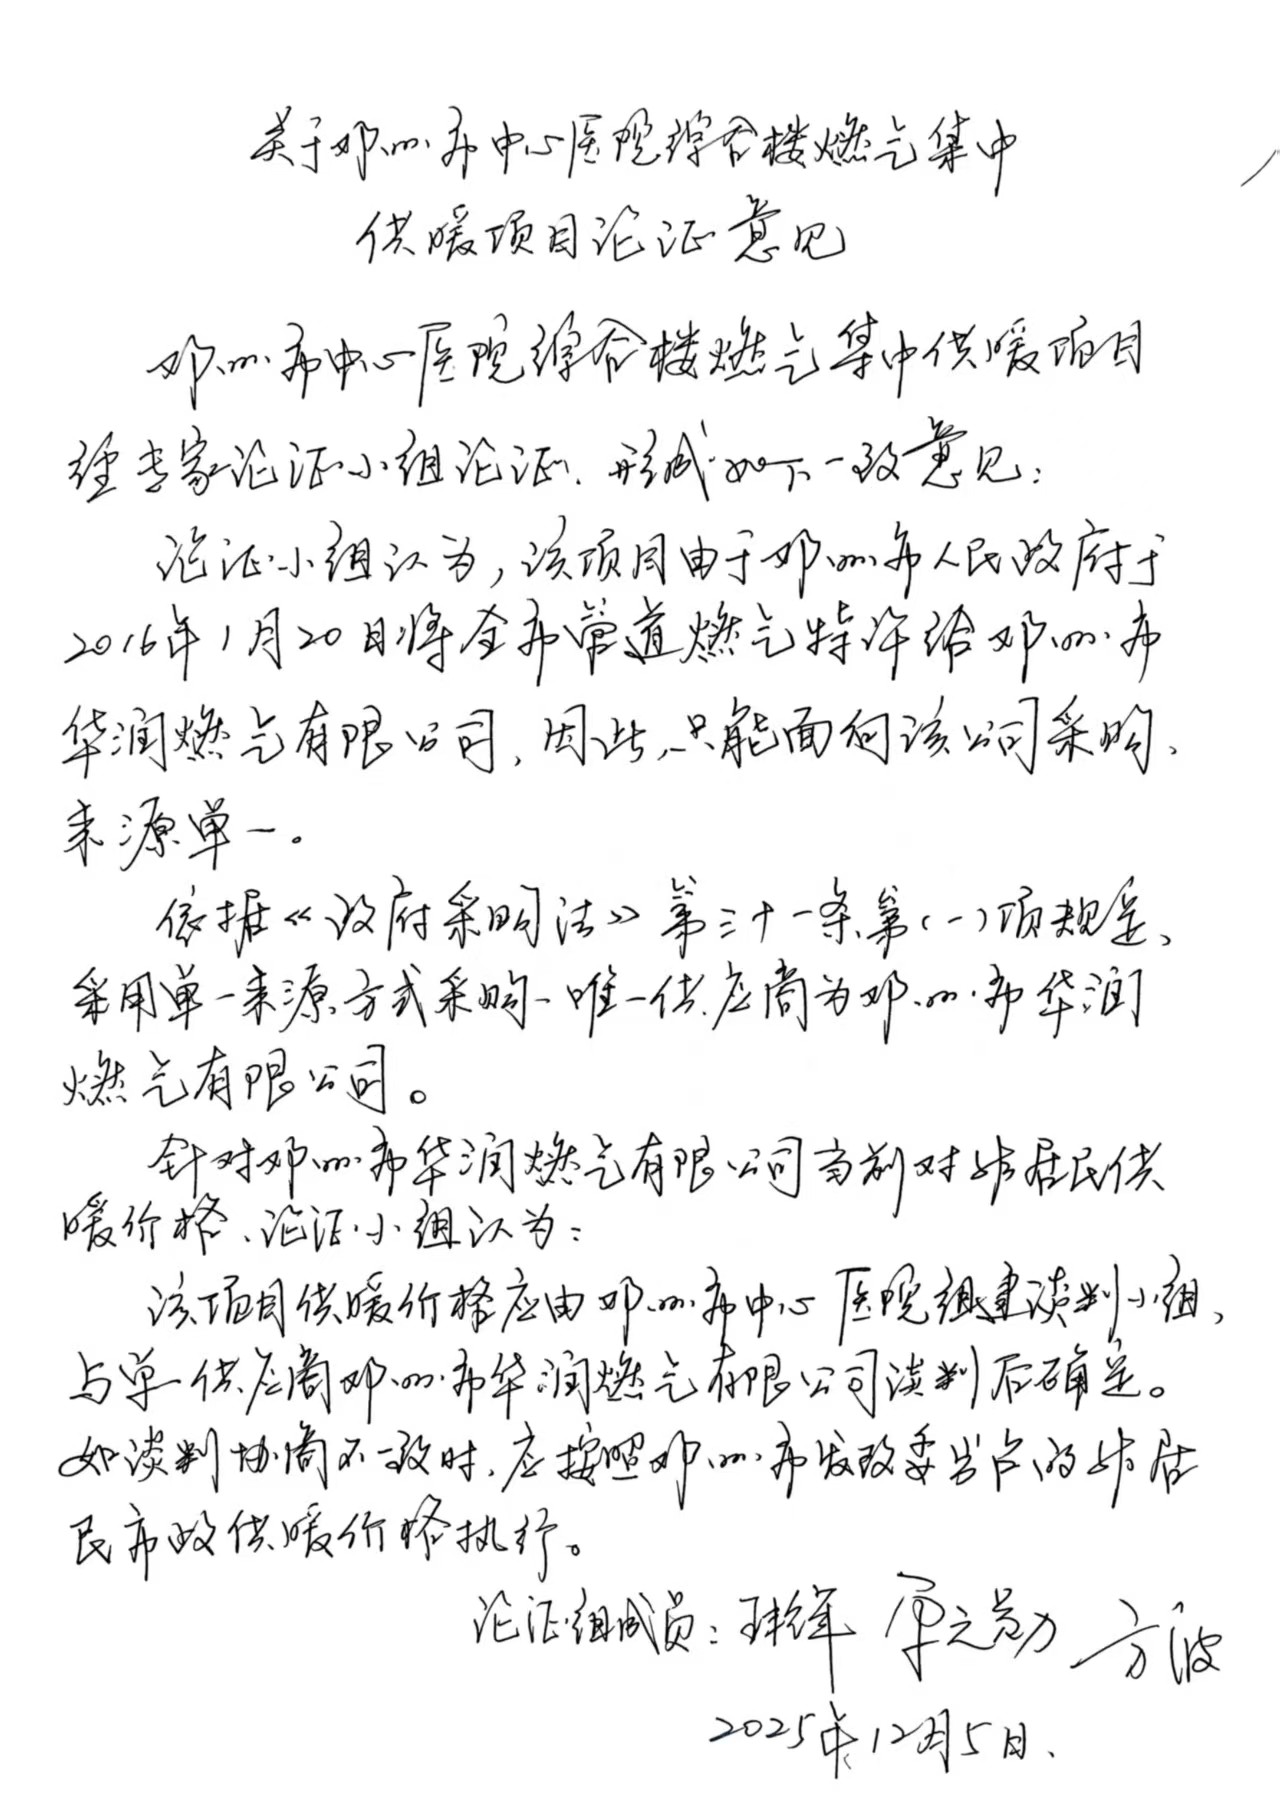 关于邓州市中心医院综合楼燃气集中
供暖项目论证意见
邓州市中心医院综合楼燃气集中供暖项目
经专家论证小组论证、形成如下一致意见：
论证小组认为，该项目由于邓州市人民政府于
2016年1月20日将全市管道燃气特许给邓州市
华润燃气有限公司，因此，只能面向该公司采购、
来源单一。
依据《政府采购法》第三十一条第（一）项规定、
采用单一来源方式采购、唯一供应商为邓州市华润
燃气有限公司。
针对邓州市华润燃气有限公司当前对非居民供
暖价格、论证小组认为：
该项目供暖价格应由邓州市中心医院组建谈判小组，
与单一供应商邓州市华润燃气有限公司谈判后确定。
如谈判协商不一致时、应按照邓州市发改委公布的非居
民市政供暖价格执行。
论证组成员： 方波
2025年12月5日、